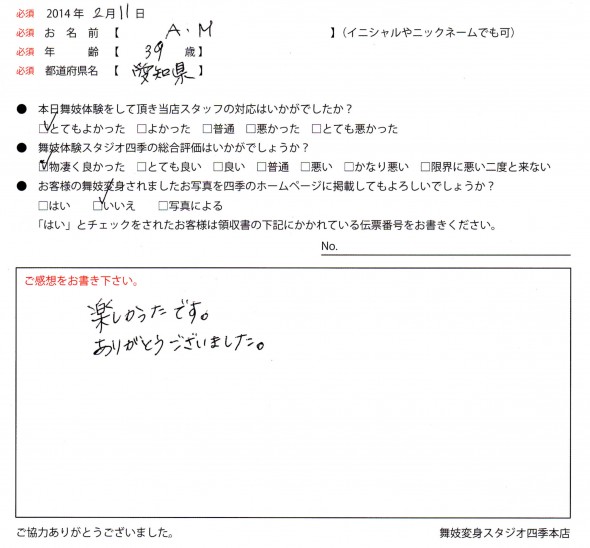 必須 2014 年 2 月 11 日
必須 お 名 前 【 A.M 】（イニシャルやニックネームでも可）
必須 年 齢 【 39 歳】
必須 都道府県名 【 愛知県 】
● 本日舞妓体験をして頂き当店スタッフの対応はいかがでしたか？
☑とてもよかった □よかった □普通 □悪かった □とても悪かった
● 舞妓体験スタジオ四季の総合評価はいかがでしょうか？
☑物凄く良かった □とても良い □良い □普通 □悪い □かなり悪い □限界に悪い二度と来ない
● お客様の舞妓変身されましたお写真を四季のホームページに掲載してもよろしいでしょうか？
□はい ☑いいえ □写真による
「はい」とチェックをされたお客様は領収書の下記にかかれている伝票番号をお書きください。
No.
ご感想をお書き下さい。
楽しかったです。
ありがとうございました。
ご協力ありがとうございました。 舞妓変身スタジオ四季本店